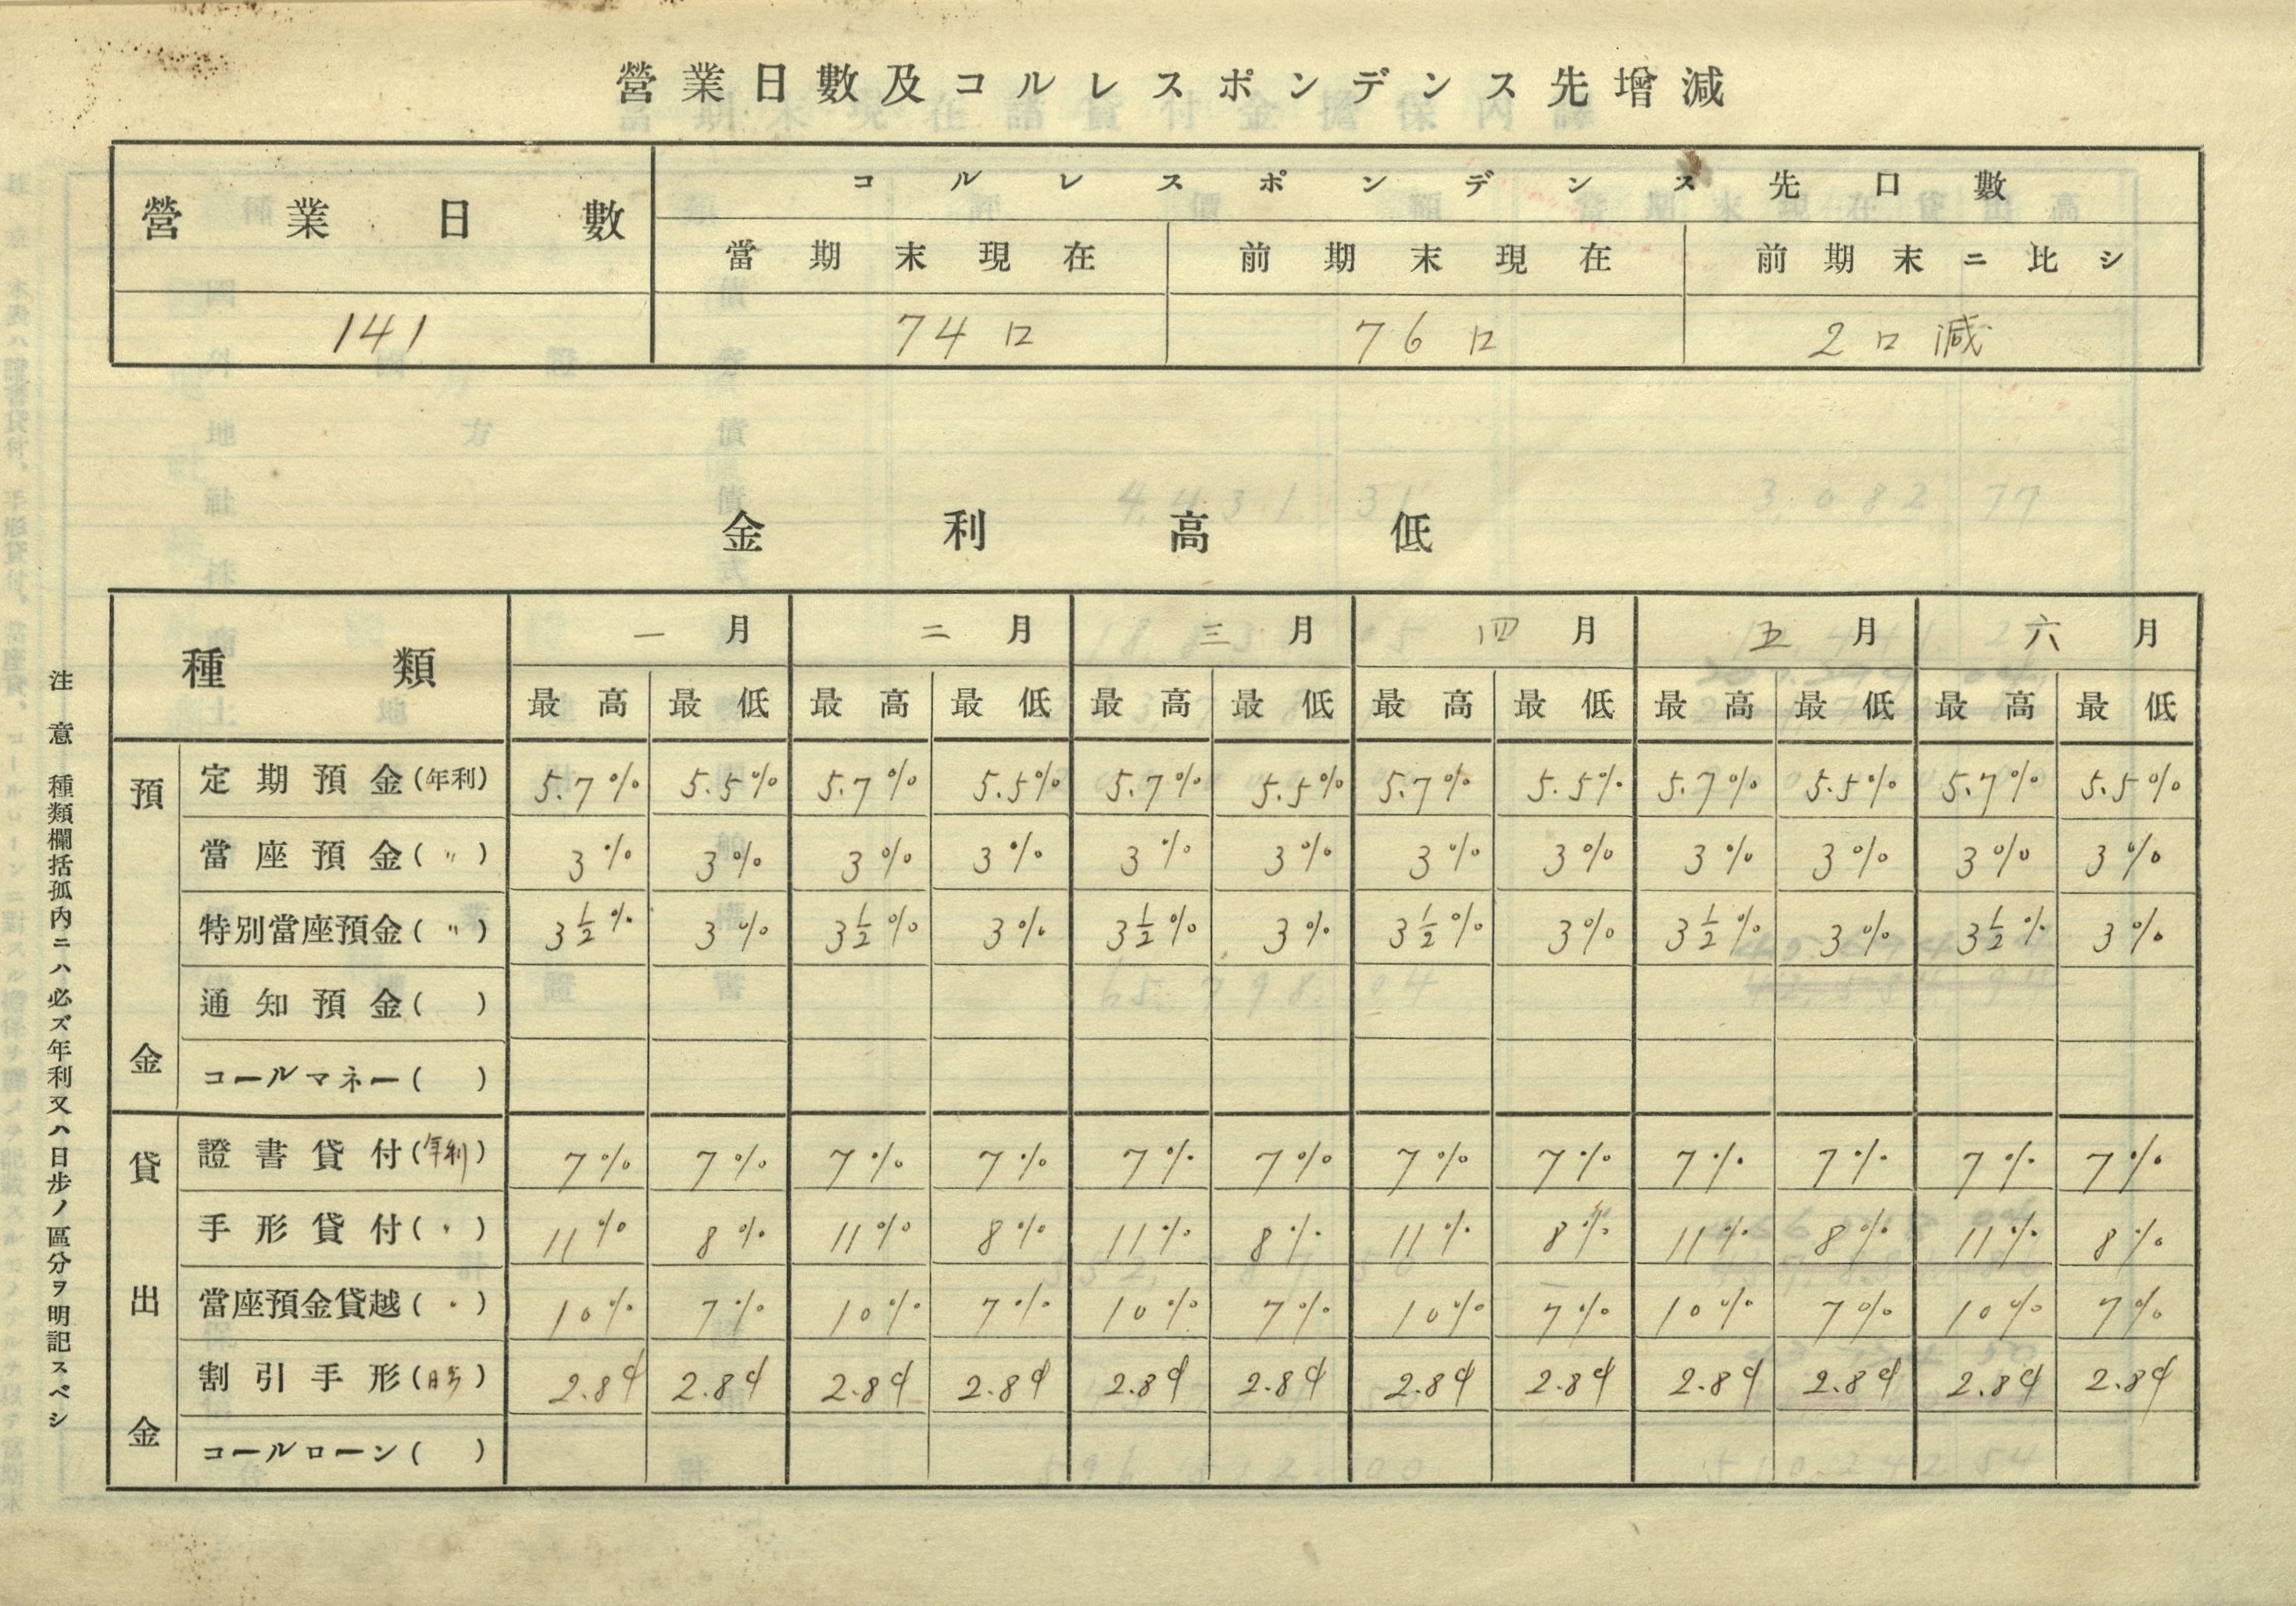 營業日數及コルレスポンデンス先增減
營業日數 コルレスポンデンス先口數
當期末現在 前期末現在 前期末ニ比シ
141 74口 76口 2口減
金利高低
種類 一月 二月 三月 四月 五月 六月
最高 最低 最高 最低 最高 最低 最高 最低 最高 最低 最高 最低
預金
定期預金(年利) 5.7% 5.5% 5.7% 5.5% 5.7% 5.5% 5.7% 5.5% 5.7% 5.5% 5.7% 5.5%
當座預金(〃) 3% 3% 3% 3% 3% 3% 3% 3% 3% 3% 3% 3%
特別當座預金(〃) 3½% 3% 3½% 3% 3½% 3% 3½% 3% 3½% 3% 3½% 3%
通知預金( )
コールマネー( )
貸出金
證書貸付(年利) 7% 7% 7% 7% 7% 7% 7% 7% 7% 7% 7% 7%
手形貸付(〃) 11% 8% 11% 8% 11% 8% 11% 8% 11% 8% 11% 8%
當座預金貸越(〃) 10% 7% 10% 7% 10% 7% 10% 7% 10% 7% 10% 7%
割引手形(日歩) 2.8¢ 2.8¢ 2.8¢ 2.8¢ 2.8¢ 2.8¢ 2.8¢ 2.8¢ 2.8¢ 2.8¢ 2.8¢ 2.8¢
コールローン( )
注意 種類欄括孤内ニハ必ズ年利又ハ日步ノ區分ヲ明記スベシ